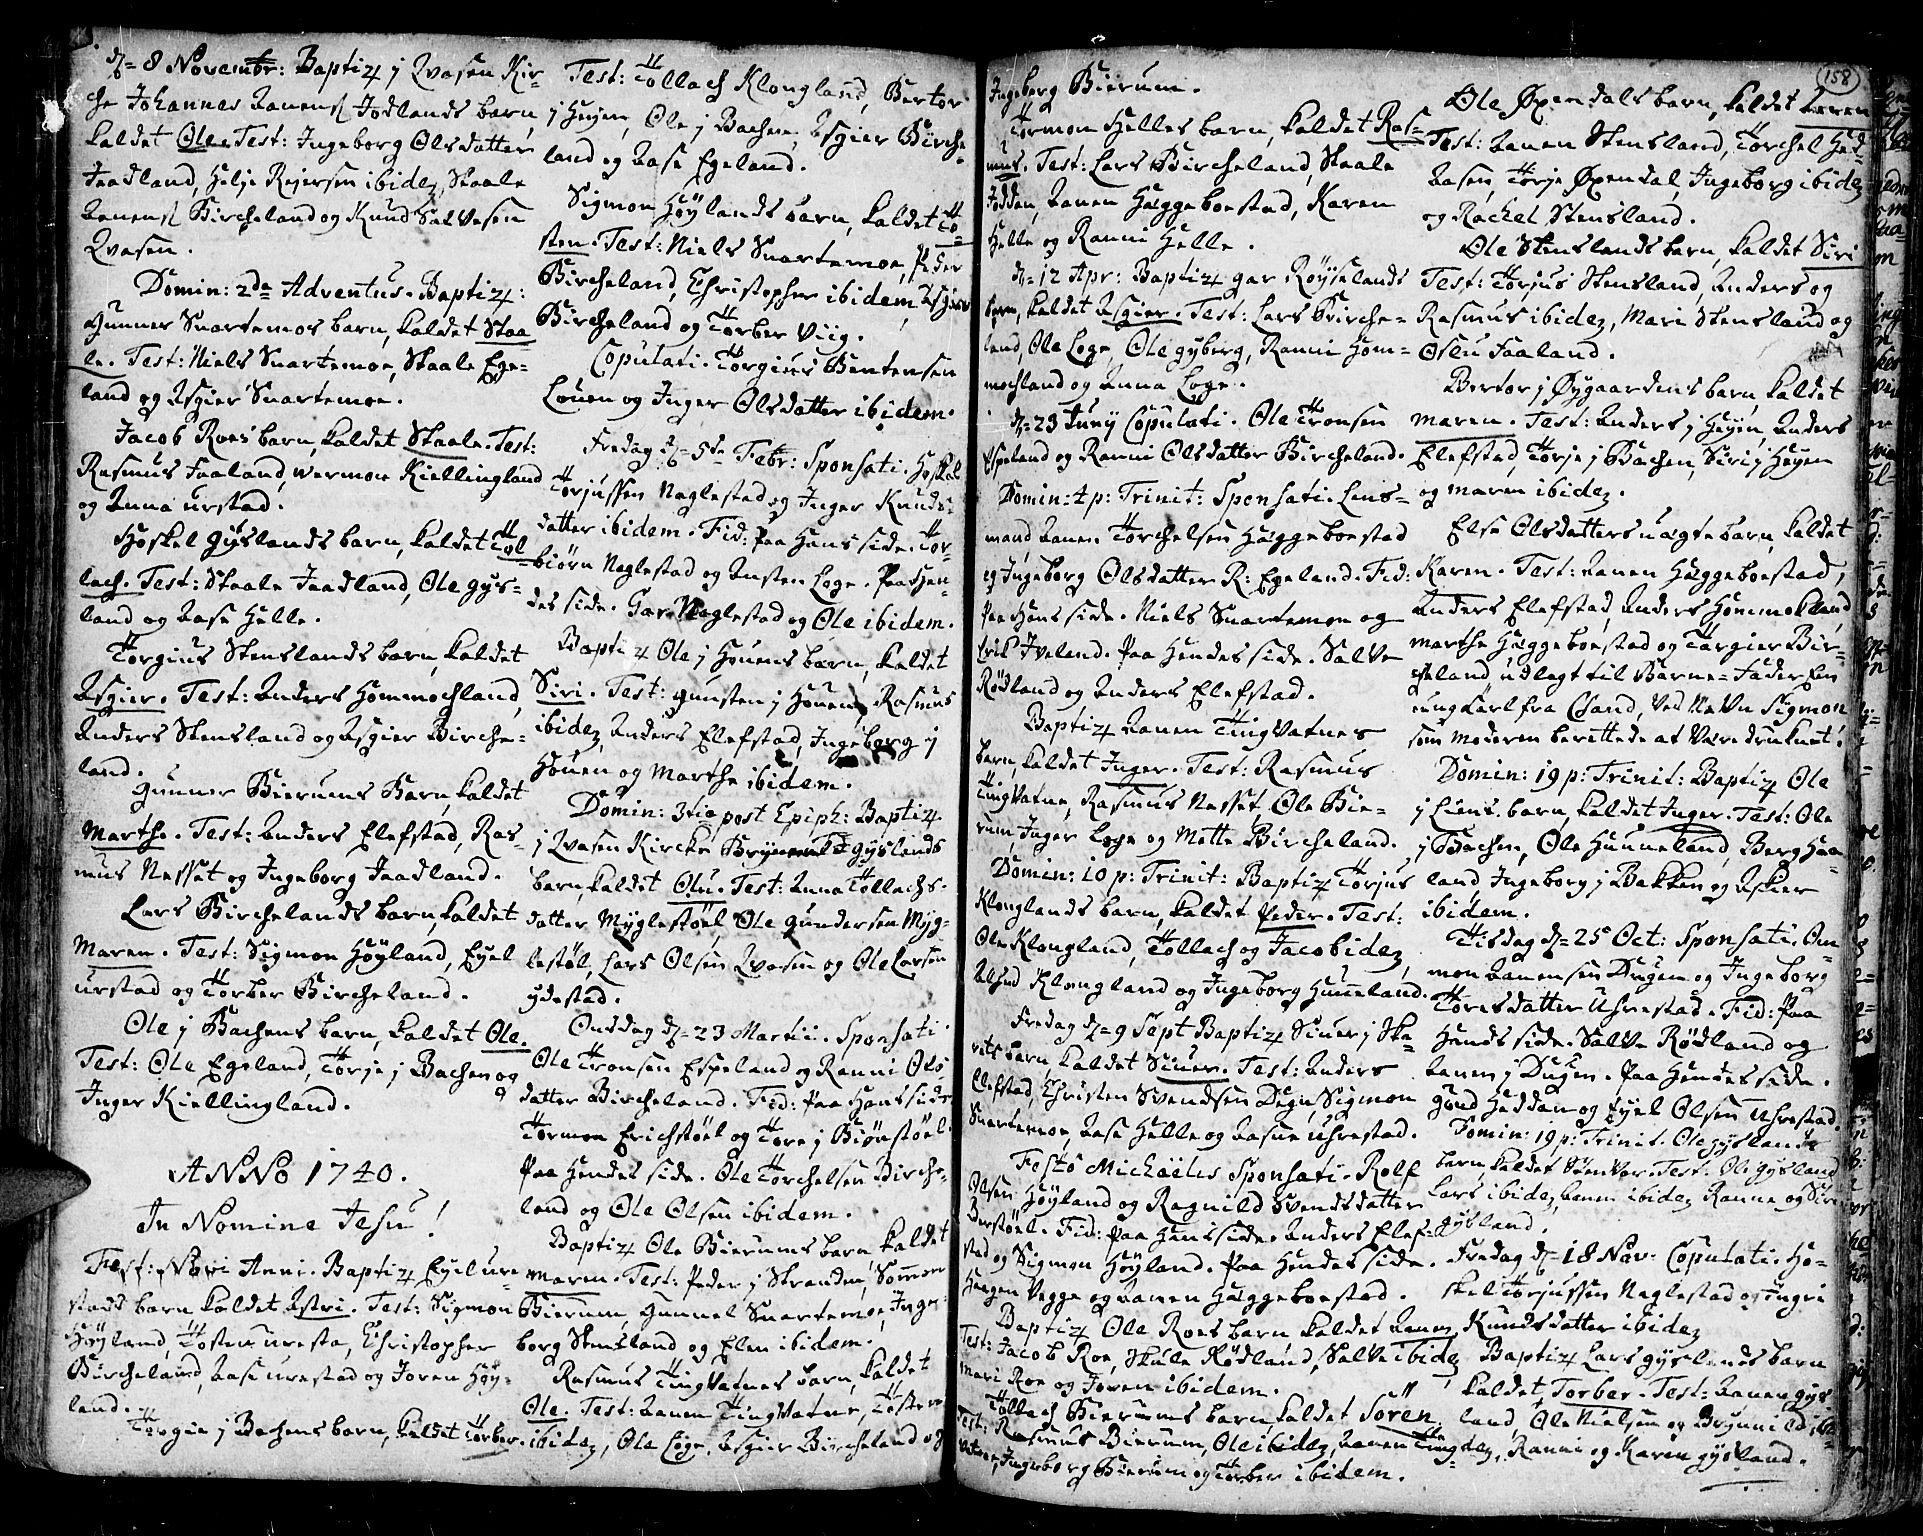 d= 8 Novembr: Baptiz j Qvasen Kir-
che Johannes Aanens Jodlands barn
kaldet Ole. Test: Ingeborg Olsdatter
Jaadland, Helje Rejersen ibidez, Staale
Aanens Bircheland og Knud Salvesen
Qvasen.
Domin: 2de Adventus. Baptiz:
Gunner Snartemos barn, kaldet Staa
le. Test: Niels Snartemoe, Staale Ege-
land og Asgier Snartemoe.
Jacob Roes barn, kaldet Staale. Test:
Rasmus Faaland, Wermon Kiellingland
og Anna urstad.
Høskel Gyslands barn, kaldet Tol
lach. Test: Staale Jaadland, Ole Gys-
land og Aase Helle.
Torgius Stenslands barn, kaldet
Asgier. Test: Anders Hommochland,
Anders Stensland og Asgier Birche-
land.
Gunner Bierums Barn, kaldet
Marthe. Test: Anders Elefstad, Ras-
mus Nesset og Ingeborg Jaadland.
Lars Birchelands barn, kaldet
Maren. Test: Sigmon Høyland, Eyel
urstad og Torber Bircheland.
Ole j Bachens barn, kaldet Ole.
Test: Ole Egeland, Torje j Bachen og
Inger Kiellingland.
ANNO 1740.
In Nomine Jesu!
Fest: Novi Anni. Baptiz Eyel ure-
stads barn kaldet Astri. Test: Sigmon
Høyland, Tosten uresta, Christopher
Bircheland, Aase urestad og Joren Høy-
land.
Torgie j Bachens barn, kaldet Torber.
Test: Tollach Klongland, Bertor
j Heyen, Ole j Bachen, Asgier Birche-
land og Aase Egeland.
Sigmon Høylands barn, kaldet To-
sten. Test: Niels Snartemoe, Peder
Bircheland, Christopher ibidem, Asgier
Bircheland og Torber Viig.
Copulati. Torgius Bentensen
Louen og Inger Olsdatter ibidem.
Fredag d= 5te Febr: Sponsati. Høskel
Torjussen Naglestad og Inger Knuds-
datter ibidem. Fid: Paa Hans side. Tor-
biörn Naglestad og Austen Loge. Paa Hen-
des side. Gar Naglestad og Ole ibidem.
Baptiz Ole j Houens barn, kaldet
Siri. Test: Gunsten j Houen, Rasmus
ibidez, Anders Elefstad, Ingeborg j
Houen og Marthe ibidem.
Domin: 3tia post Epiph: Baptiz
j Qvasen Kircke Gyslands
barn, kaldet Olu. Test: Anna Tollachs-
datter Myglestøel, Ole Gundersen Myg-
lestøl, Lars Olsen Qvasen og Ole Larsen
ydestad.
Onsdag d= 23 Martii. Sponsati.
Ole Tronsen Espeland og Ranni Ols
datter Bircheland. Fid: Paa Hans side
Tormon Erichstøel og Tore j Biønstøel.
Paa Hendes side. Ole Torchelsen Birche-
land og Ole Olsen ibidem.
Baptiz Ole Bierums barn, kaldet
Maren. Test: Peder j Stranden, Sommon
Bierum, Gunnel Snartemoe, Inge-
borg Stensland og Elen ibidem.
Rasmus Tingvatnes barn, kaldet
Ole. Test: Aanen Tingvatne, Tosten
ibidez, Ole Loge, Asgier Bircheland og
158
Ingeberg Bierum.
Tormon Helles barn, kaldet Ras-
mus. Test: Lars Bircheland, Staale
Hodden, Aanen Hæggeboestad, Karen
Helle og Ranni Helle.
d= 12 Apr: Baptiz gar Røyselands
barn, kaldet Asgier. Test: Lars Birche-
land, Ole Loge, Ole Gyberg, Ranni Hom-
mochland og Anna Loge.
d= 23 Juny Copulati. Ole Tronsen
Espeland og Ranni Olsdatter Bircheland.
Domin: 4 p: Trinit: Sponsati. Lens-
mand Aanen Torchelsen Hæggeboestad
og Ingeborg Olsdatter R: Egeland. Fid:
Paa Hans side. Niels Snartemoe og
Erik Iveland. Paa Hendes side. Salve
Rødland og Anders Elefstad.
Baptiz Aanen Tingvatnes
barn, kaldet Inger. Test: Rasmus
Tingvatne, Rasmus Nesset, Ole Bie-
rum, Inger Loge og Mette Bircheland.
Domin: 10 p: Trinit: Baptiz Torjus
Klonglands barn, kaldet Peder. Test:
Ole Klongland, Tollach og Jacob idez,
Klongland og Ingeborg Hunneland.
Fredag d= 9 Sept Baptiz Siuer j Ske-
rets barn, kaldet Siuer. Test: Anders
Elefstad, Christen Svendsen Degn, Sigmon
Snartemoe, Aase Helle og Aasne uhrestad.
Festo Michäelis Sponsati. Rolf
Olsen Høyland og Ragnild Svendsdatter
Fid: Paa Hans side. Anders Elef-
stad og Sigmon Høyland. Paa Hendes side.
Haagen Vegge og Aanen Hæggeboestad.
Baptiz Ole Roes barn kaldet Aanen
Test: Jacob Roe, Skule Rødland, Salve ibidez
Mari Roe og Joren ibidem.
Tollach Bierums barn, kaldet Soren
Test: Rasmus Bierum, Ole ibidez, Aanen Ting
vatne, Ingeborg Bierum og Torber ibidem.
Ole Øxendals barn, kaldet Aanen
Test: Aanen Stensland, Torchel Hed-
Aasen, Torje Øxendal, Ingeborg ibidez
og Rachel Stensland.
Ole Stenslands barn, kaldet Siri
Test: Torjus Stensland, Anders og
Rasmus ibidez, Mari Stensland og
Oslu Faaland.
Bertor j Øygaardens barn, kaldet
Maren. Test: Anders j Heyen, Anders
Elefstad, Torje j Bachen, Siri j Heyen
og Maren ibidez.
Else Olsdatters uægte barn, kaldet
Karen. Test: Aanen Hæggeboestad,
Anders Elefstad, Anders Hommokland,
Marthe Hæggeboestad og Torgier Bir-
cheland, udlagt til Barne-Fader En
ung Karl fra Chsand, Ved Navn Sigmon
som Moderen berettede at Være druknet.
Domin: 19 p: Trinit: Baptiz Ole
j Liens barn, kaldet Inger. Test: Ole
j Bachen, Ole Hunneland, Berg Haa-
land Ingeborg j Bakken og Askier
ibidem.
Tisdag d= 25 Oct: Sponsati. Om-
mon Aanensen Dugen og Ingeborg
Toresdatter Uhrestad. Fid: Paa
Hands side. Salve Rødland og
Aanen j Dugen. Paa Hendes side.
Gund Heddan og Eyel Olsen Uhrestad.
Domin: 19 p: Trinit. Ole gyslands
barn, kaldet Sønvor. Test: Ole gysland
Lars ibidez, Aanen ibidez Ranne og Siri
gysland.
Fredag d= 18 Nov. Copulati. Hø-
skel Torjussen Naglestad og Ingri
Knudsdatter ibidez
Baptiz Lars gyslands barn
kaldet Torber. Test: Aanen gys
land, Ole Nielsen og Brynnild ibi-
dez, Ranni og Karen gysland.